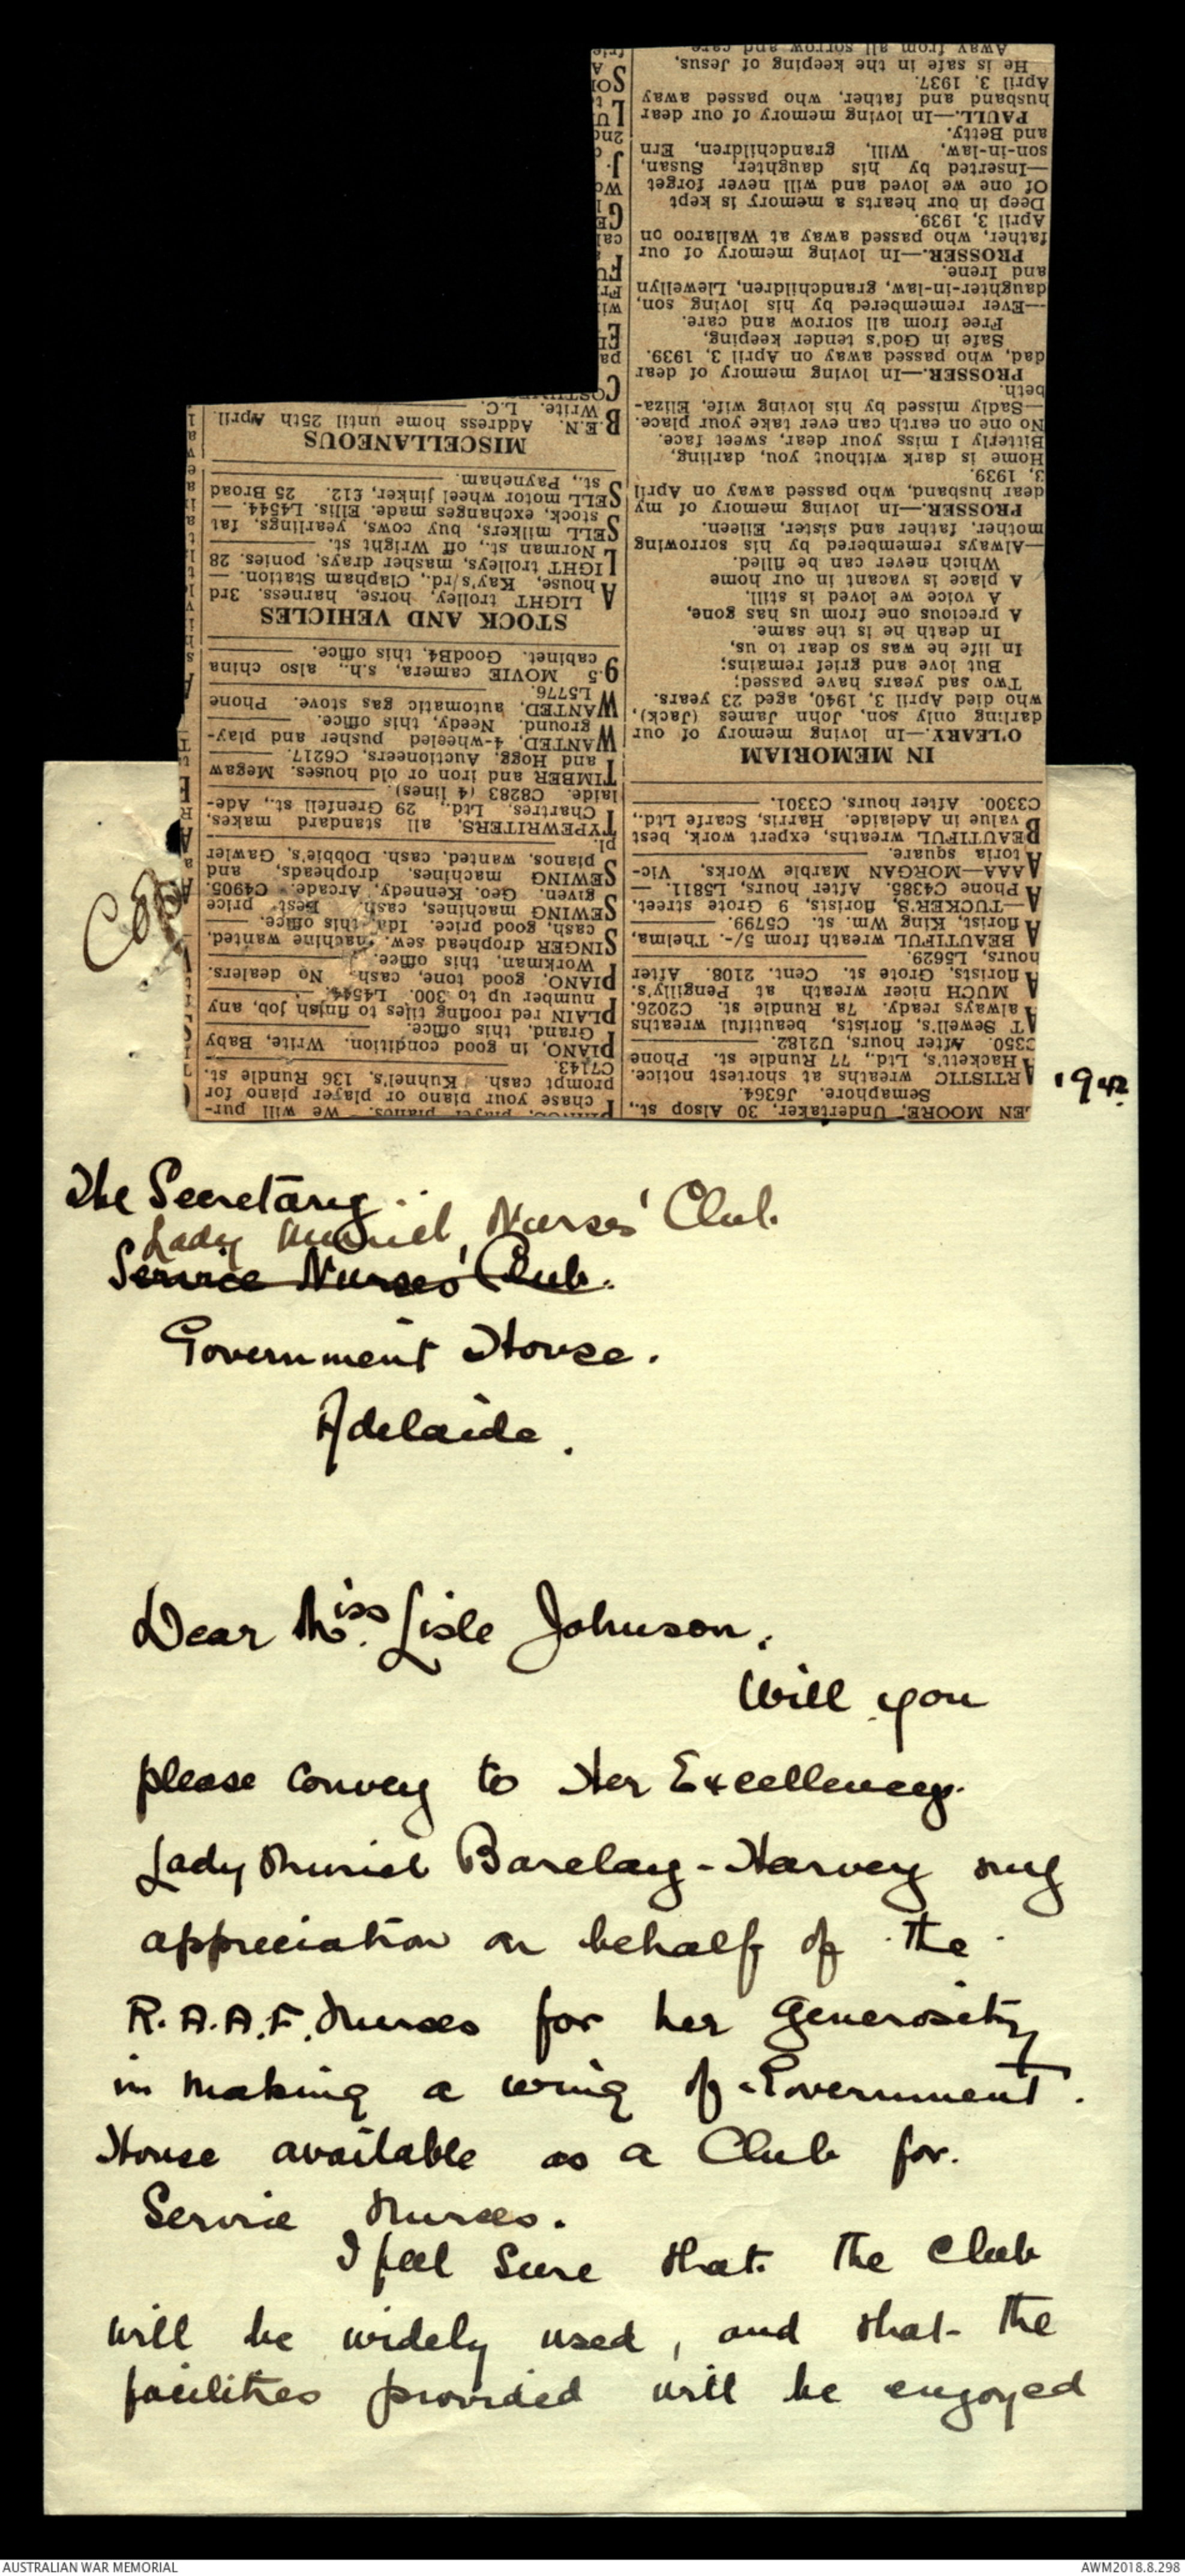 LEN MOORE, Undertaker, 30 Alsop st.,
Semaphore. J6364.
ARTISTIC wreaths at shortest notice.
Hackett's, Ltd., 77 Rundle st. Phone
C350. After hours, U2182.
AT Sewell's, florists, beautiful wreaths
always ready. 7a Rundle st. C2026.
A MUCH nicer wreath at Pengilly's,
florists, Grote st. Cent. 2108. After
hours, L5629.
A BEAUTIFUL wreath from 5/-. Thelma,
florist, King Wm. st. C5799.
A—TUCKER'S, florists, 9 Grote street.
Phone C4385. After hours, L5811. —
AAA—MORGAN Marble Works, Vic-
toria square.
BEAUTIFUL wreaths, expert work, best
value in Adelaide. Harris, Scarfe Ltd.,
C3300. After hours, C3301.
IN MEMORIAM
O'LEARY.—In loving memory of our
darling only son, John James (Jack),
who died April 3, 1940, aged 23 years.
Two sad years have passed;
But love and grief remains;
In life he was so dear to us,
In death he is the same.
A precious one from us has gone,
A voice we loved is still,
A place is vacant in our home
Which never can be filled.
—Always remembered by his sorrowing
mother, father and sister, Eileen.
PROSSER.—In loving memory of my
dear husband, who passed away on April
3, 1939.
Home is dark without you, darling,
Bitterly I miss your dear, sweet face.
No one on earth can ever take your place.
—Sadly missed by his loving wife, Eliza-
beth.
PROSSER.—In loving memory of dear
dad, who passed away on April 3, 1939.
Safe in God's tender keeping,
Free from all sorrow and care.
—Ever remembered by his loving son,
daughter-in-law, grandchildren, Llewellyn
and Irene.
PROSSER.—In loving memory of our
father, who passed away at Wallaroo on
April 3, 1939.
Deep in our hearts a memory is kept
Of one we loved and will never forget
—Inserted by his daughter, Susan,
son-in-law, Will, grandchildren, Ern
and Betty.
PAULL.—In loving memory of our dear
husband and father, who passed away
April 3, 1937.
He is safe in the keeping of Jesus,
Away from all sorrow and care
PIANOS, player pianos. — We will pur-
chase your piano or player piano for
prompt cash. Kuhnel's, 136 Rundle st.
C7143.
PIANO, in good condition. Write, Baby
Grand, this office.
PLAIN red roofing tiles to finish job, any
number up to 300. L4544.
PIANO, good tone, cash. No dealers.
Workman, this office.
SINGER drophead sew. machine wanted,
cash, good price. Ida, this office. —
SEWING machines, cash. Best price
given. Geo. Kennedy, Arcade. C4905.
SEWING machines, dropheads, and
pianos, wanted, cash. Dobbie's, Gawler
pl.
TYPEWRITERS, all standard makes,
Chartres, Ltd., 29 Grenfell st., Ade-
laide. C8283 (4 lines).
TIMBER and iron or old houses. Megaw
and Hogg, Auctioneers, C6217.
WANTED, 4-wheeled pusher and play-
ground. Needy, this office.
WANTED, automatic gas stove. Phone
L5776.
9.5 MOVIE camera, s.h., also china
cabinet. GoodB4, this office.
STOCK AND VEHICLES
A LIGHT trolley, horse, harness. 3rd
house, Kay's/rd., Clapham Station. —
LIGHT trolleys, masher drays, ponies. 28
Norman st., off Wright st.
SELL milkers, buy cows, yearlings, fat
stock, exchanges made. Ellis. L4544. —
SELL motor wheel jinker, £12. 25 Broad
st., Payneham.
MISCELLANEOUS
B.E.N. Address home until 25th April.
Write. L.C.
'942
The Secretary
Lady Muriel Nurses' Club
Service Nurses' Club.
Government House.
Adelaide.
Dear Miss. Lisle Johnson.
Will you
please convey to Her Excellency
Lady Muriel Barclay-Harvey my
appreciation on behalf of the
R.A.A.F. Nurses for her generosity
in making a wing of Government
House available as a Club for
Service Nurses.
I feel sure that the Club
will be widely used, and that the
facilities provided will be enjoyed
AUSTRALIAN WAR MEMORIAL
AWM2018.8.298